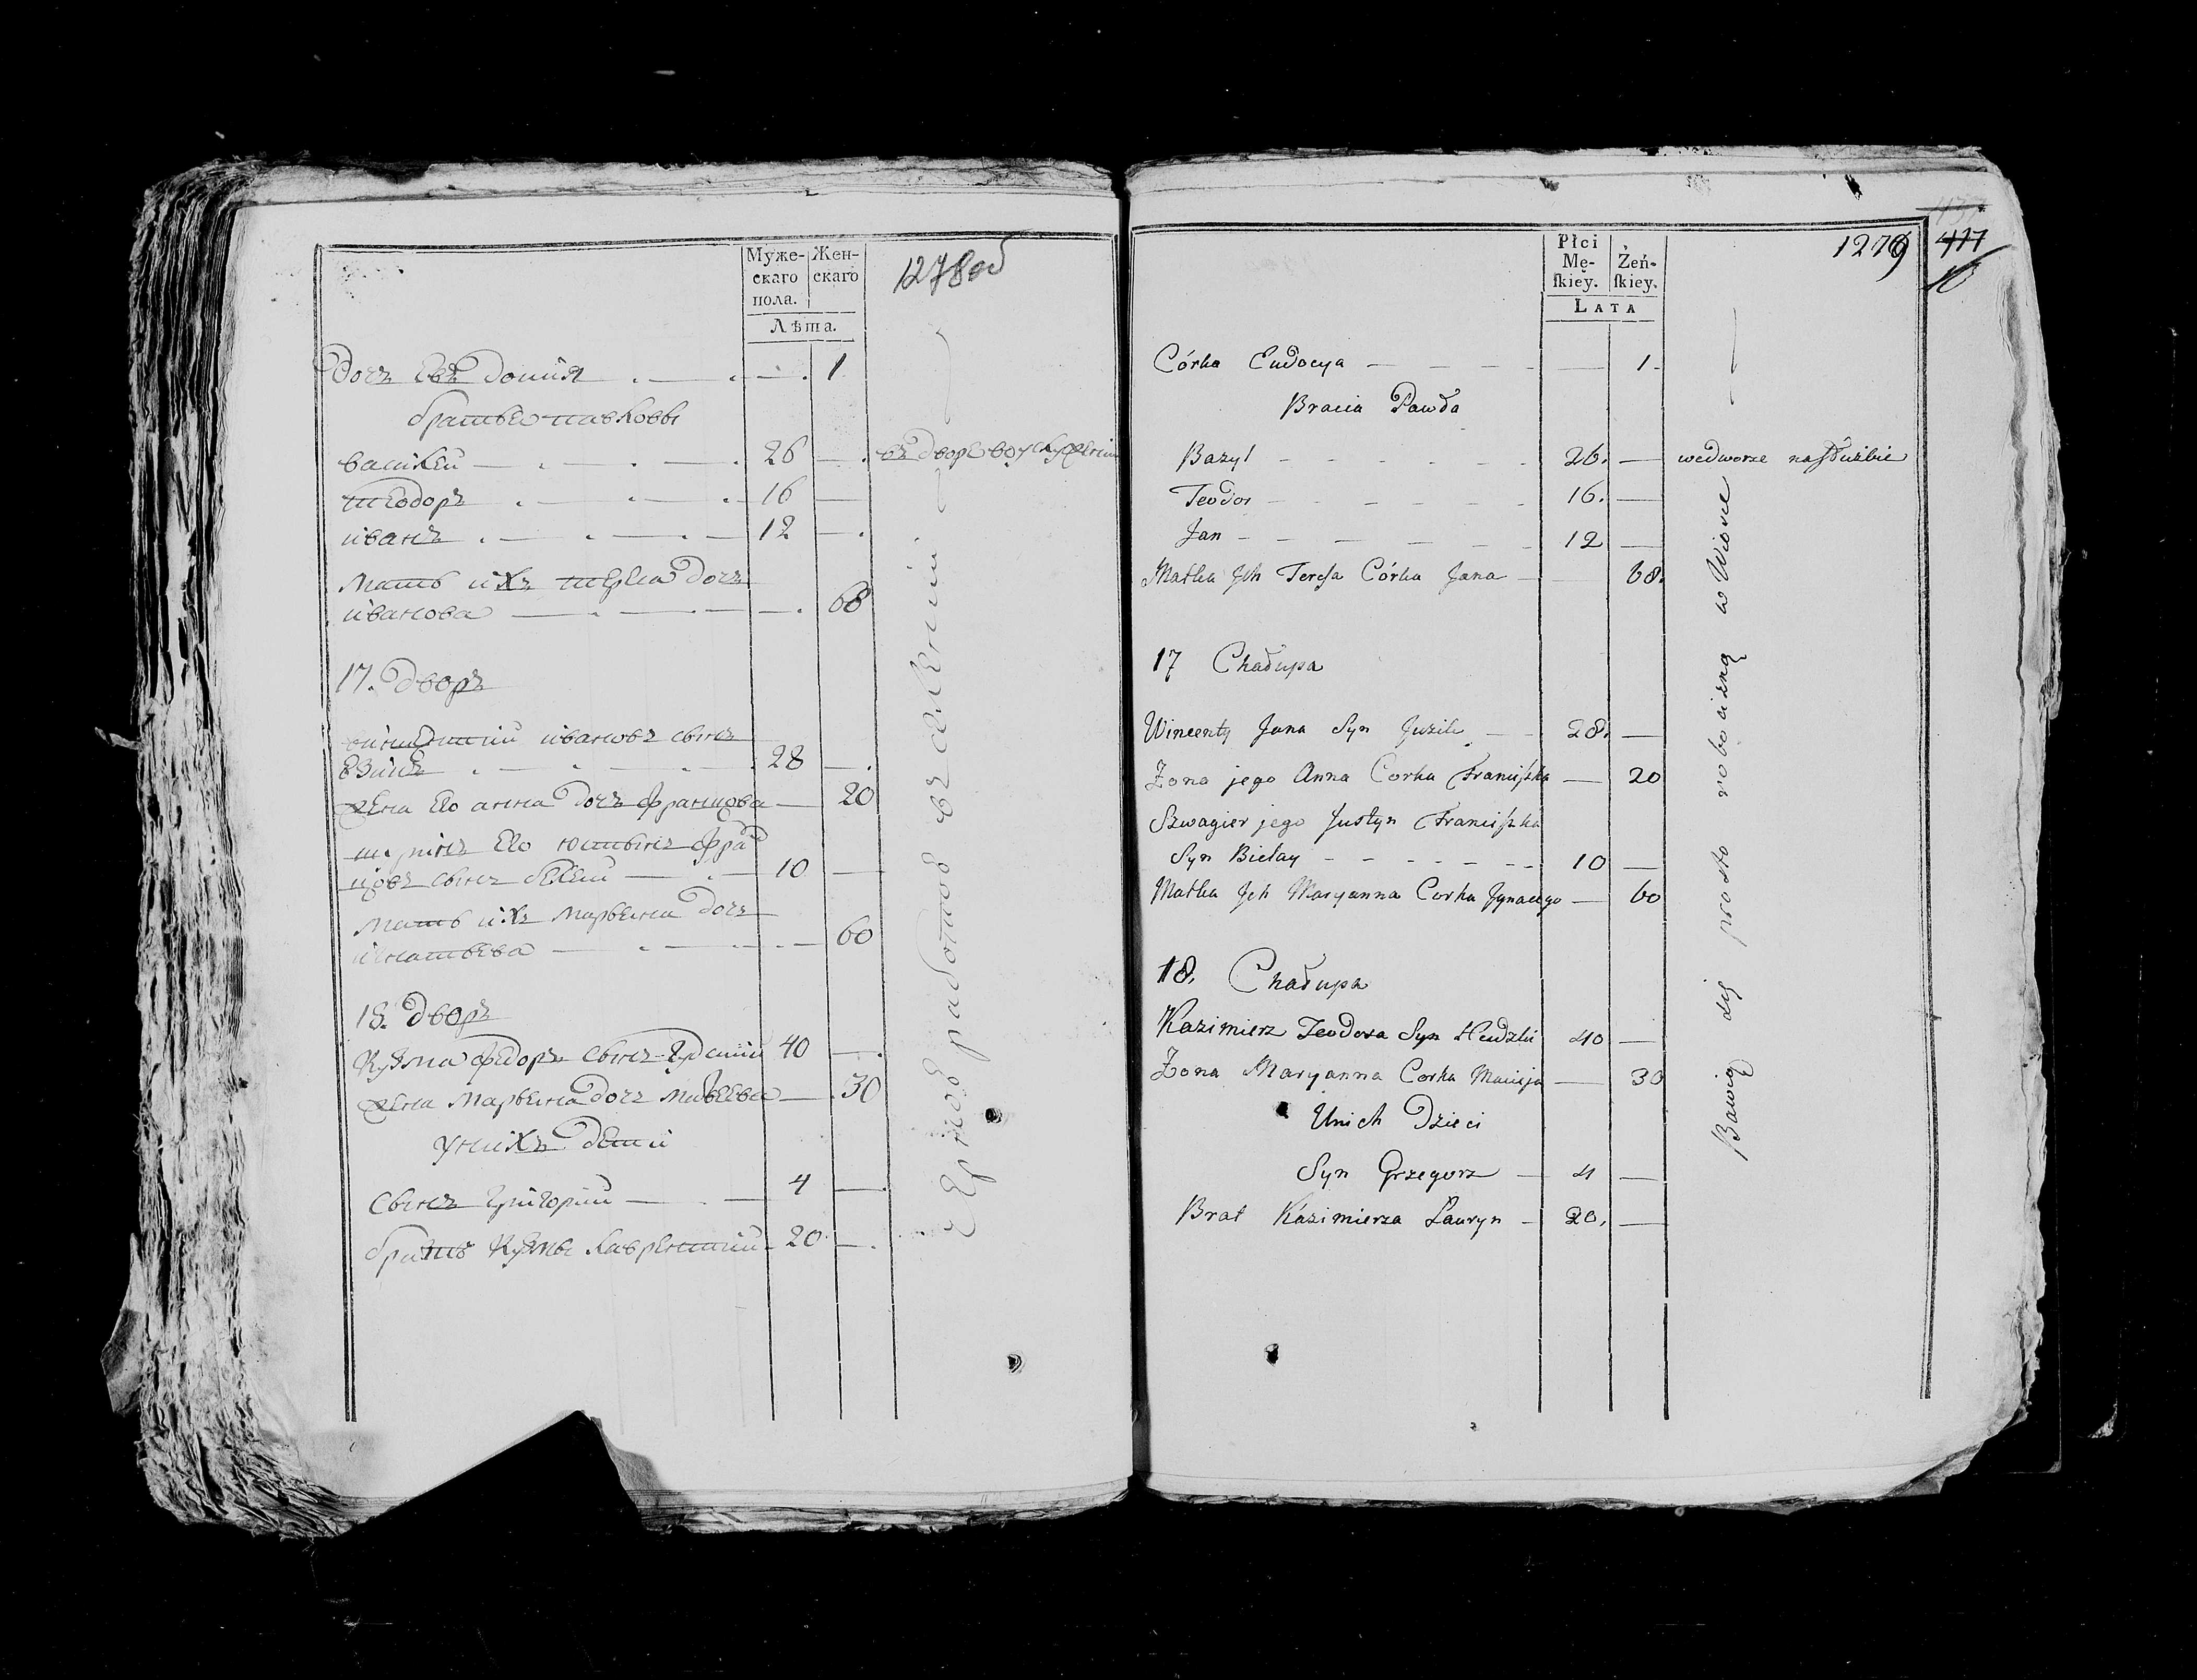 Муже-
скаго
пола.
Жен-
скаго
Лѣта.
1278 об
дочъ евъдокия 1
братья павловы
василей 26 въ дворе во услужении
теодоръ 16
иванъ 12
мать ихъ тереса дочъ
иванова 68
17. дворъ
викентий ивановъ сынъ
28
жена его анна дочъ францова 20
шуринъ его юстынъ фран
цовъ сынъ белей 10
мать ихъ марьяна дочъ
игнатьева 60
18. дворъ
кузма федоръ сынъ 40
жена марьяна дочъ 30
у нихъ дети
сынъ григорий 4
братъ кузмы лаврентий 20
черною работою въ селении
Płci
Mę-
ſkiey.
Żeń-
ſkiey.
LATA
1279
417
Córka Eudocya — 1.
Bracia Pawła
Bazyl — 26. — we dworze na służbie
Teodor — 16. —
Jan — 12 —
Matka Jch Teresa Córka Jana — 68.
17 Chałupa
Wincenty Jana Syn Juzik — 28. —
Zona jego Anna Corka Franciszka — 20
Szwagier jego Justyn Franciszka
Syn Biełay — 10 —
Matka Jch Maryanna Corka Jgnacego — 60
18. Chałupa
Kazimierz Teodora Syn Hudzki 40 —
Zona Maryanna Corka Macieja — 30
U nich Dzieci
Syn Grzegorz — 4 —
Brat Kazimierza Lauryn — 20. —
Bawią się prosto robocizną w Wiosce